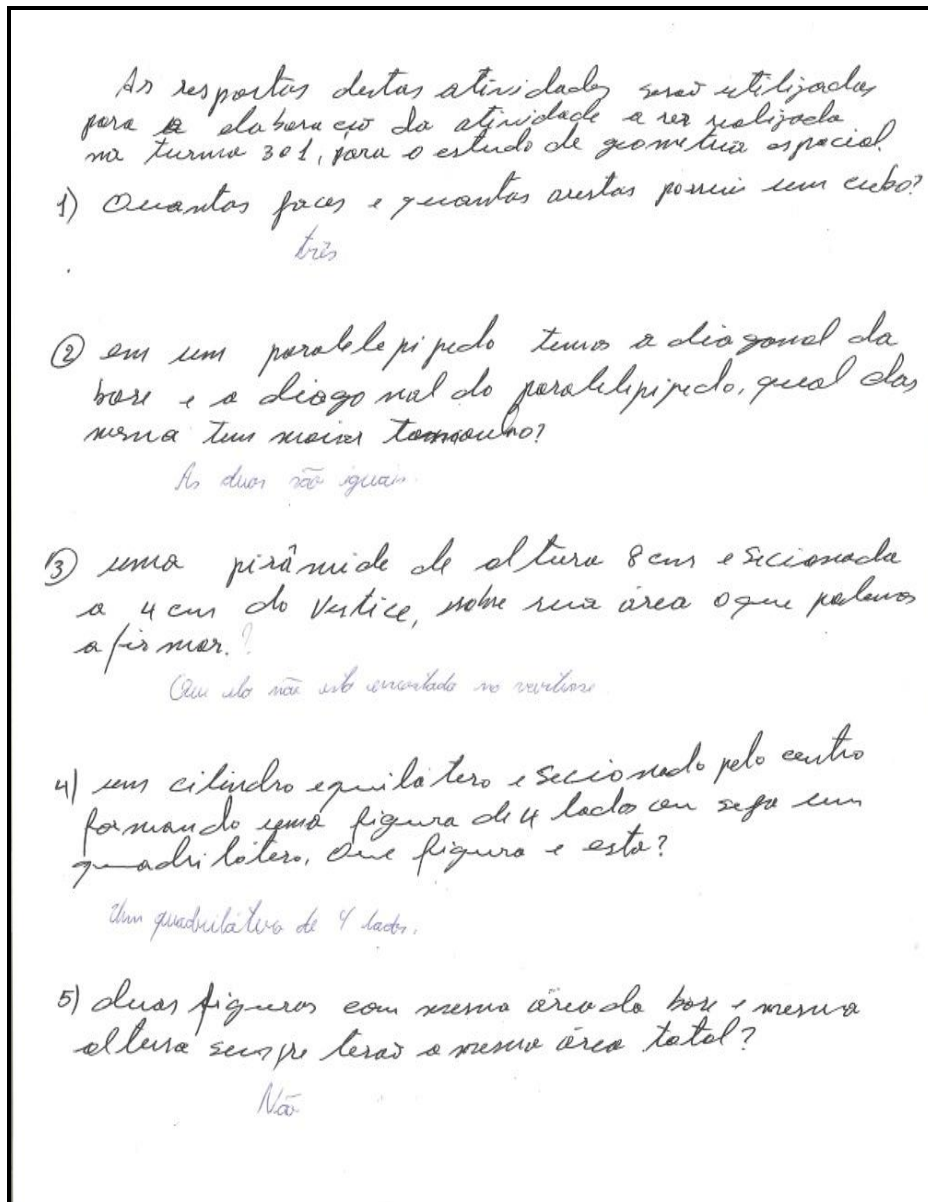 As respostas destas atividades serão utilizadas
para a elaboração da atividade a ser realizada
na turma 301, para o estudo de geometria espacial.
1) Quantas faces e quantas arestas possui um cubo?
três
② em um paralelepipedo temos a diagonal da
base e a diagonal do paralelepipedo, qual das
mesma tem maior tamanho?
As duas são iguais.
③ uma pirâmide de altura 8 cm e secionada
a 4 cm do vertice, sobre sua área o que podemos
afirmar.?
Que ela não esta encostada no
4) um cilindro equilátero e secionado pelo centro
formando uma figura de 4 lados ou seja um
quadrilátero, Que figura e esta?
Um quadrilátero de 4 lados.
5) duas figuras com mesma área da base e mesma
altura sempre terão a mesma área total?
Não